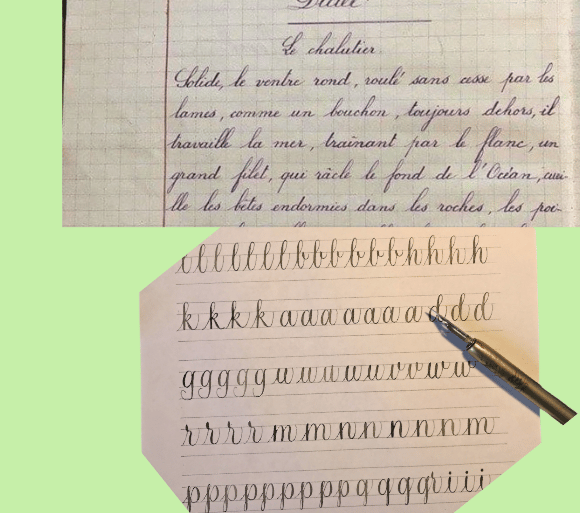 Dictée
Le chalutier.
Solide, le ventre rond, roulé sans cesse par les
lames, comme un bouchon, toujours dehors, il
travaille la mer, traînant par le flanc, un
grand filet, qui râcle le fond de l'Océan, cuei-
lle les bêtes endormies dans les roches, les poi-
l l l l l l l l b b b b b b b h h h h
k k k k a a a a a a a d d d
g g g g g u u u u u v v w w
r r r r m m n n n n n n m
p p p p p p p p p q q q q r i i i